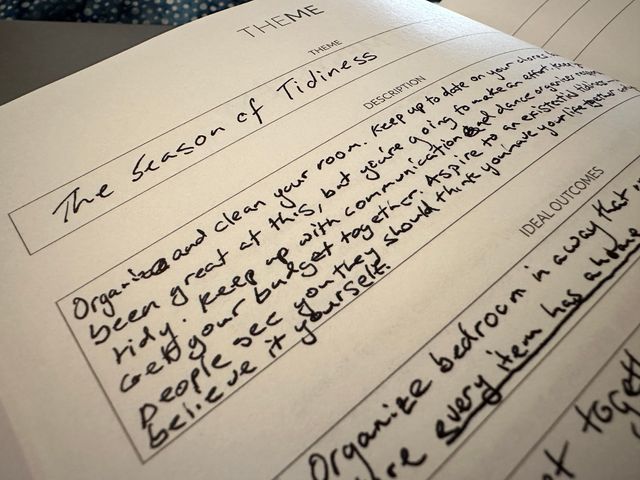 THEME
THEME
The Season of Tidiness
DESCRIPTION
Organize and clean your room. Keep up to date on your chores
been great at this, but you're going to make an effort. Keep
tidy. Keep up with communication and dance organizer
Get your budget together. Aspire to an existential
People see you they should think you have your life together
believe it yourself.
IDEAL OUTCOMES
Organize bedroom in a way that
every item has a home
together